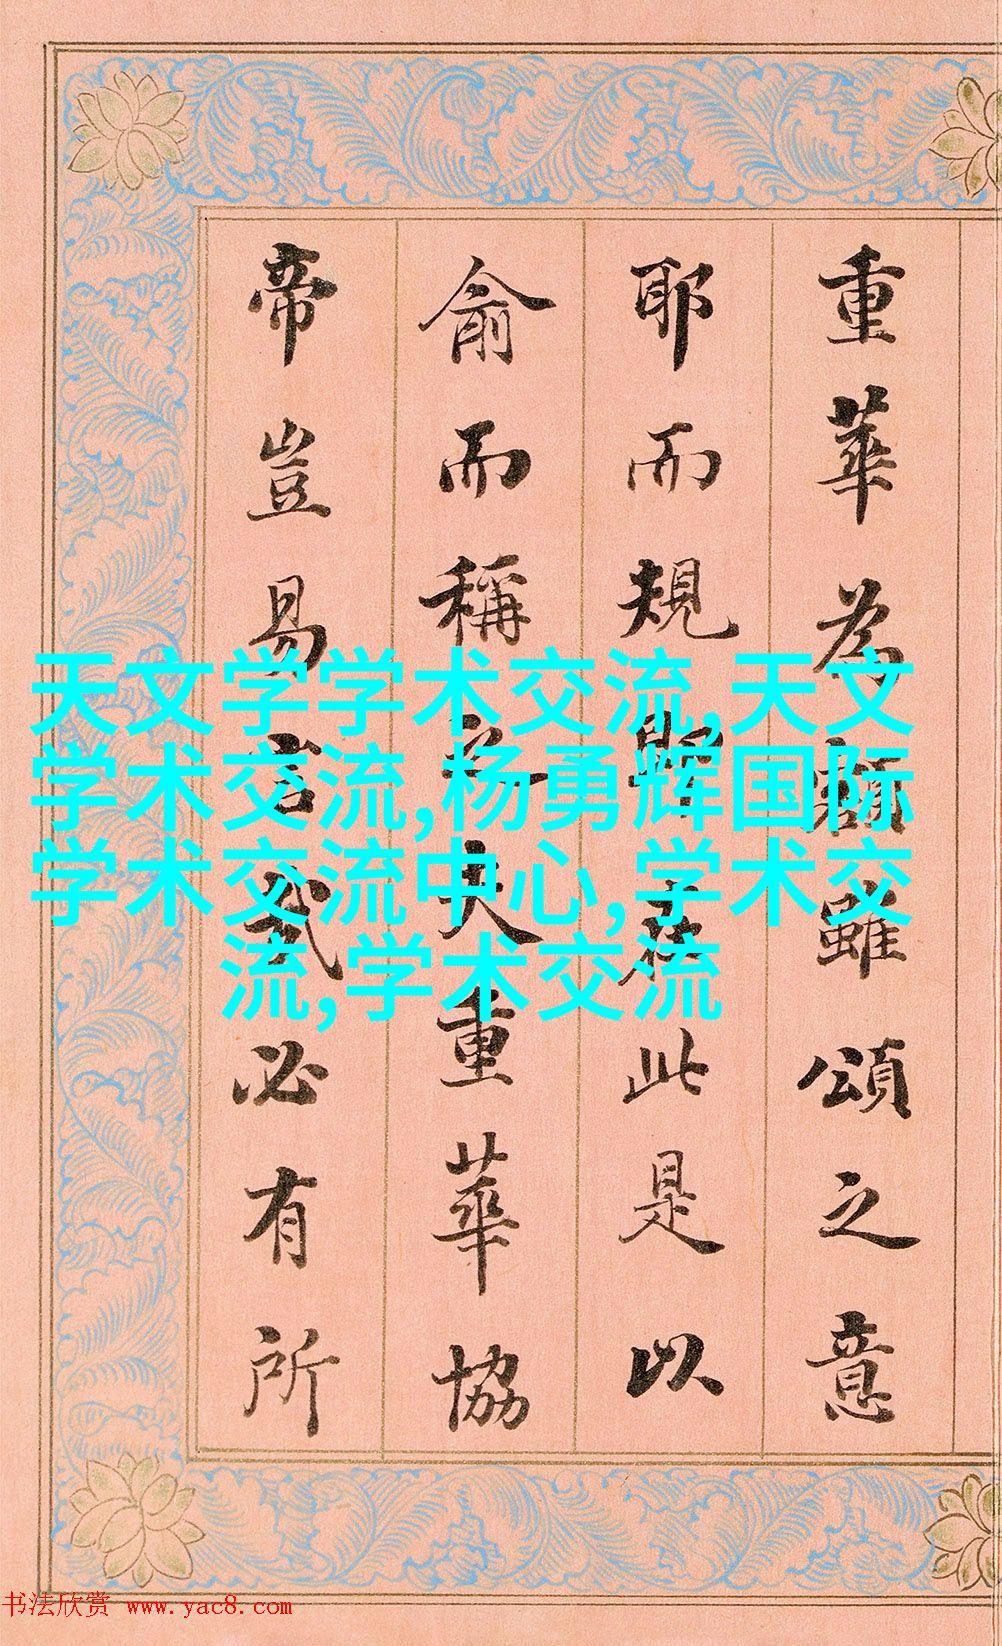 重華為額雖頌之意
耶而規在此是以
俞而稱夫重華協
帝豈易言哉必有所
天文学学术交流,天文
学术交流,杨勇辉国际
学术交流中心,学术交
流,学术交流
书法欣赏 www.yac8.com